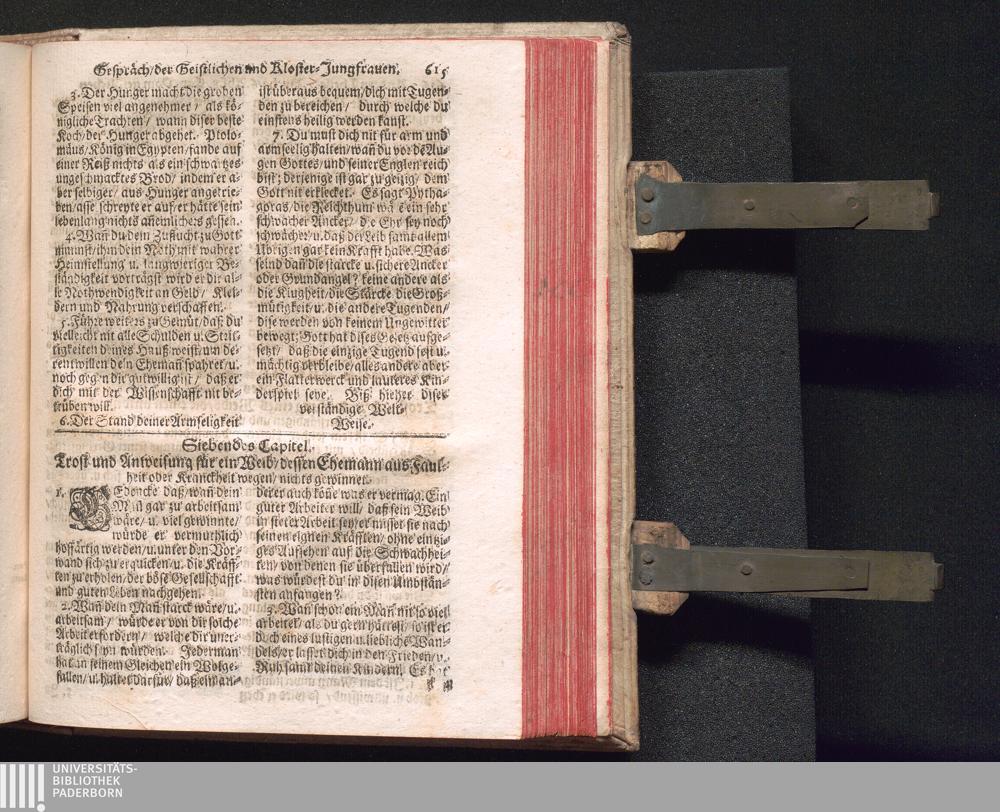 Gespräch/der Geistlichen und Kloster-Jungfrauen. 615
3. Der Hunger macht die groben
Speisen viel angenehmer / als kö-
nigliche Trachten / wann diser beste
Koch/der Hunger abgehet. Ptolo-
mäus/König in Egypten/fande auf
einer Reiß nichts als ein schwartzes
ungeschmacktes Brod/ indem er a-
ber selbiger/ aus Hunger angetrie-
ben/asse schreyte er auf/er hätte sein
lebenlang nichts
4. Wañ du dein Zuflucht zu Gott
nimmst/ihm dein Noth mit wahrer
Heimstellung u. langwieriger Be-
ständigkeit vorträgst wird er dir al-
le Nothwendigkeit an Geld/ Klei-
dern und Nahrung verschaffen.
5. Führe weiters zu Gemüt/daß du
vielleicht nit alle Schulden u. Strit-
tigkeiten deines Hauß weist/um de-
rentwillen dein Ehemañ spahret/u.
noch gegen dir gutwillig ist/ daß er
dich mit der Wissenschafft nit be-
trüben will.
6. Der Stand deiner Armseligkeit
ist überaus bequem/dich mit Tugen-
den zu bereichen/ durch welche du
einstens heilig werden kanst.
7. Du must dich nit für arm und
armseelig halten/wañ du vor dē Au-
gen Gottes/und seiner Englen reich
bist; derjenige ist gar zu geizig/ dem
Gott nit erklecket. Es sagt Pytha-
goras/die Reichthum wäre ein sehr
schwacher Ancker/ die Ehr sey noch
schwächer/u. daß der Leib samt allem
übrigen gar kein Krafft habe. Was
seind dañ die starcke u. sichere Ancker
oder Grundangel? keine andere als
die Klugheit/die Stärcke die Groß-
mütigkeit/u. die andere Tugenden/
dise werden von keinem Ungewitter
bewegt; Gott hat dises Gesez aufge-
setzt/ daß die einzige Tugend fest u.
mächtig verbleibe/alles andere aber
ein Flatterwerck und lauteres Kin-
derspiel seye. Biß hieher diser
verständige Welt-
Weise.
Siebendes Capitel.
Trost und Anweisung für ein Weib/dessen Ehemann aus Faul-
heit oder Kranckheit wegen/ nichts gewinnet.
1. GEdencke daß/wañ dein
Mañ gar zu arbeitsam
wäre/ u. viel gewinnte/
wurde er vermuthlich
hoffärtig werden/u. unter den Vor-
wand sich zu erquicken/u. die Kräff-
ten zu erholen/der böse Gesellschafft
und guten Leben nachgehen.
2. Wañ dein Mañ starck wäre/u.
arbeitsam/ würde er von dir solche
Arbeit erfordern/ welche dir uner-
träglich seyn würden. Jederman
hat an seinem Gleichen ein Wolge-
fallen/u. haltet darfür/ daß
derer auch köñe was er vermag. Ein
guter Arbeiter will/ daß sein Weib
in steter Arbeit sey/er misset sie nach
seinen eignen Kräfften/ ohne einzi-
ges Aufsehen auf die Schwachhei-
ten/ von denen sie überfallen wird/
was würdest du in disen Umbstän-
sten anfangen?
3. Wañ schon ein Mañ nit so viel
arbeitet/ als du gern hättest/ so ist er
doch eines lustigen u. lieblichē Wan-
dels/er lasset dich in den Frieden/u.
Ruh samt deinen Kindern. Es hat
UNIVERSITÄTS-
BIBLIOTHEK
PADERBORN